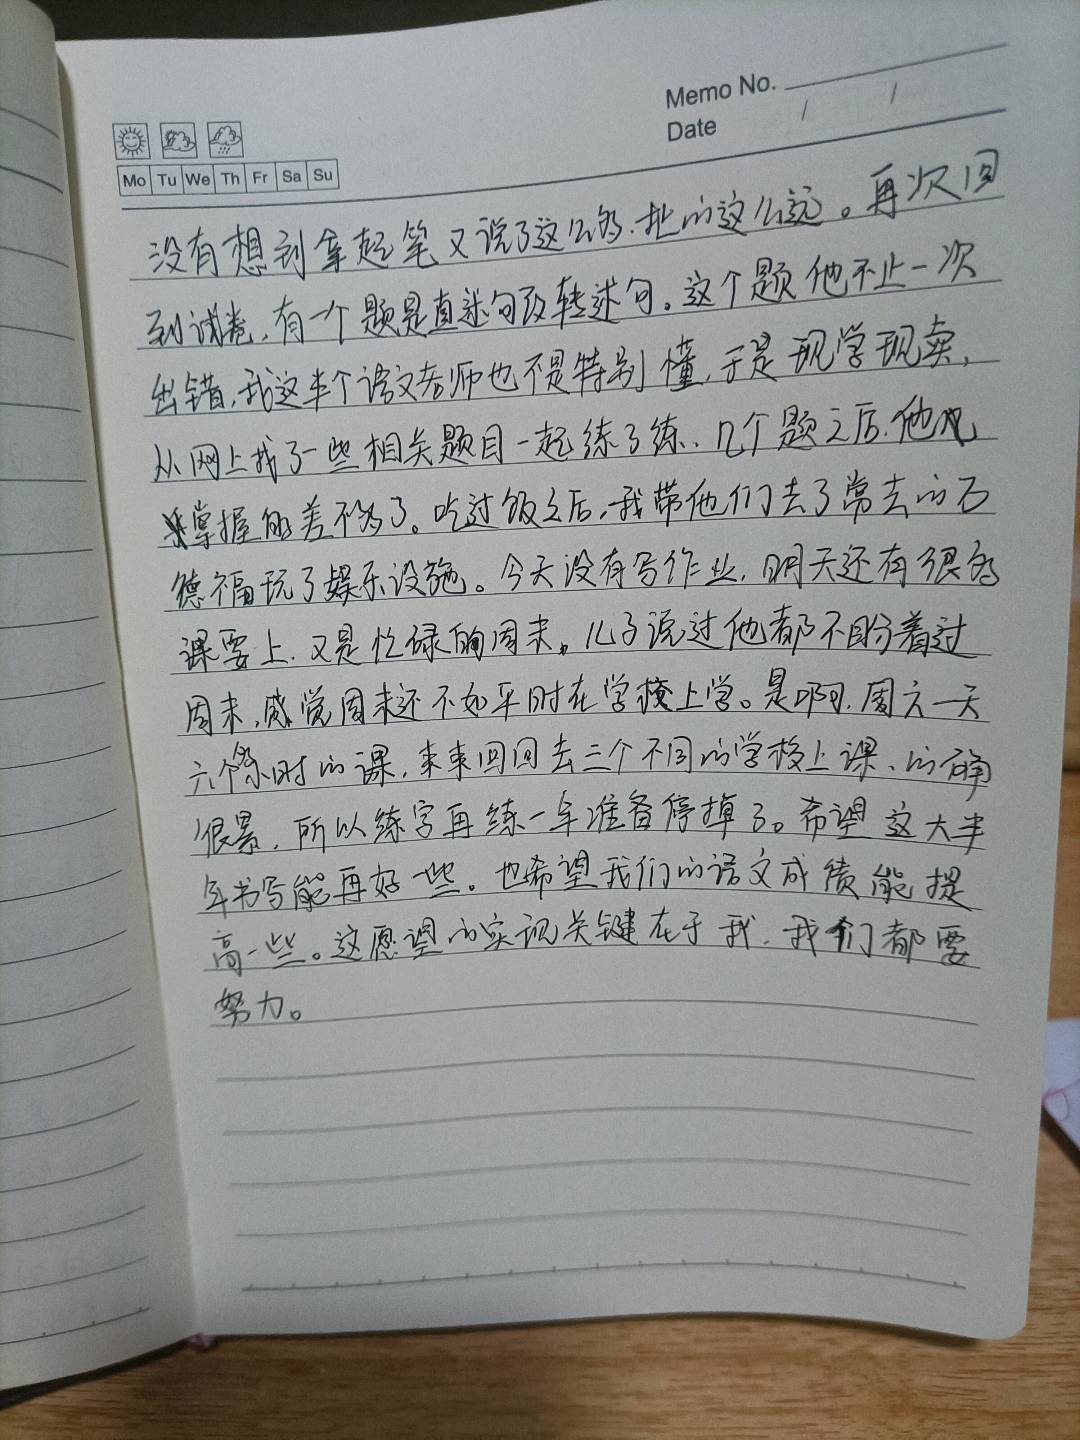 Memo No.
Date / /
Mo Tu We Th Fr Sa Su
没有想到拿起笔又说了这么多,扯的这么远。再次回
到试卷,有一个题是直述句改转述句。这个题他不止一次
出错,我这半个语文老师也不是特别懂,于是现学现卖,
从网上找了一些相关题目一起练了练,几个题之后,他
掌握的差不多了。吃过饭之后,我带他们去了常去的万
德福玩了娱乐设施。今天没有写作业,明天还有很多
课要上,又是忙碌的周末。儿子说过他都不盼着过
周末,感觉周末还不如平时在学校上学。是啊,周六一天
六个小时的课,来来回回去三个不同的学校上课,的确
很累,所以练字再练一年准备停掉了。希望这大半
年书写能再好一些。也希望我们的语文成绩能提
高一些。这愿望的实现关键在于我,我们都要
努力。